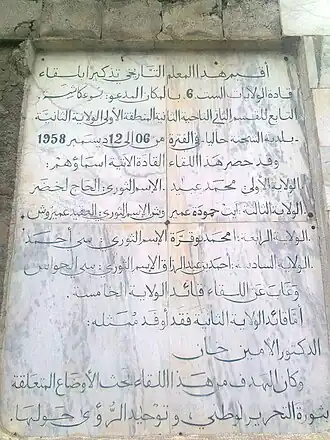 أقيم هذا المعلم التاريخي تذكيرا بلقاء
قادة الولايات الست 6 بالمكان المدعو: بوعكاش
التابع للقسم الثاني الناحية الثانية المنطقة الأولى الولاية الثانية
بلدية الشحنة حاليا - والفترة من 06 إلى 12 ديسمبر 1958
وقد حضر هذا اللقاء القادة الآتية أسماؤهم:
الولاية الأولى: محمد عبيد الإسم الثوري: الحاج لخضر
الولاية الثالثة: آيت حمودة عمير وش الإسم الثوري: العقيد عميروش
الولاية الرابعة: امحمد بوقرة الإسم الثوري: سي أحمد
الولاية السادسة: أحمد بن عبد الرزاق الإسم الثوري: سي الحواس
وغاب عن اللقاء قائد الولاية الخامسة.
أما قائد الولاية الثانية فقد أوفد ممثله:
الدكتور الأمين خان
وكان الهدف من هذا اللقاء بحث الأوضاع المتعلقة
بثورة التحرير الوطني، وتوحيد الرؤى حولها.